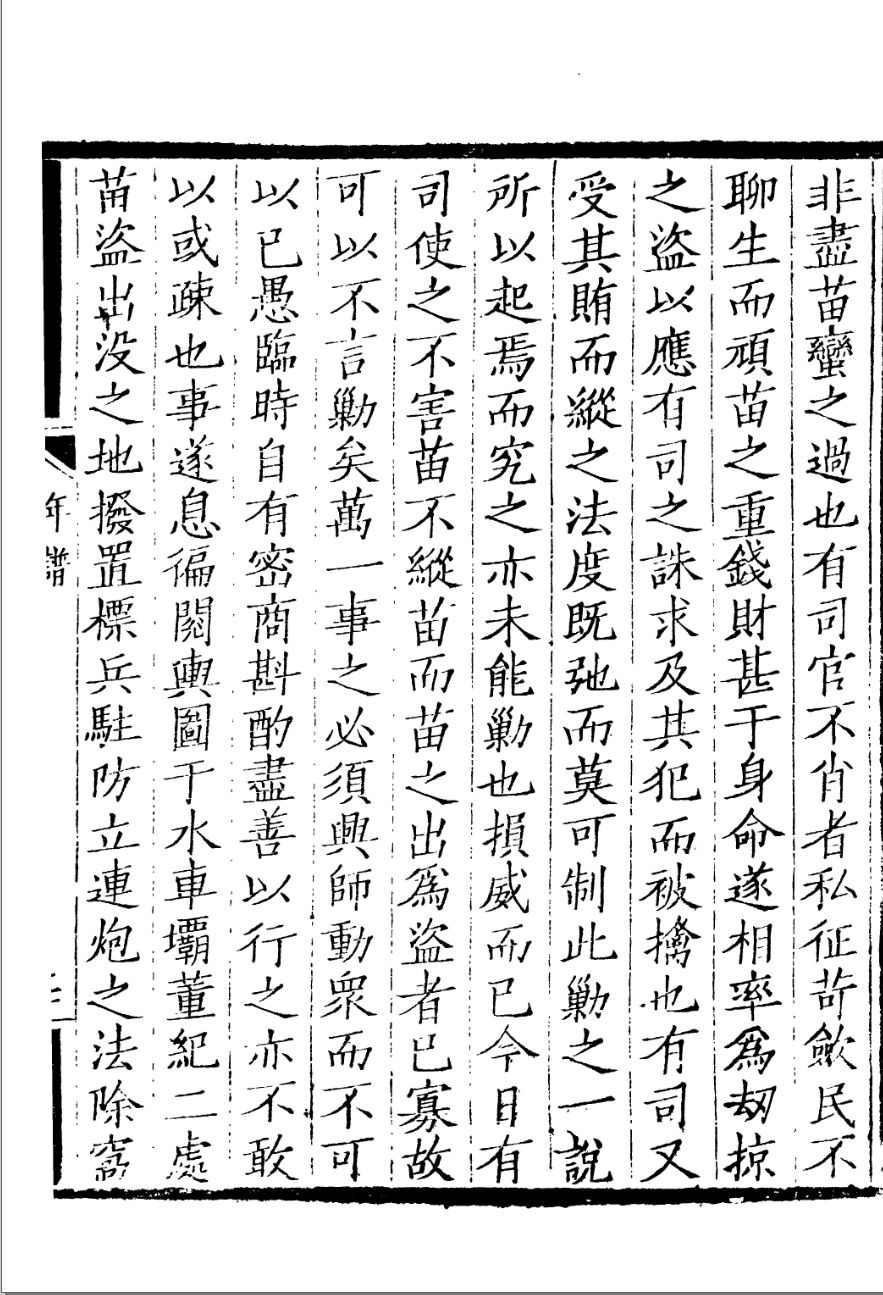 非盡苗蠻之過也有司官不肖者私征苛歛民不
聊生而頑苗之重錢財甚于身命遂相率爲刼掠
之盜以應有司之誅求及其犯而被擒也有司又
受其賄而縱之法度既弛而莫可制此勦之一說
所以起焉而究之亦未能勦也損威而已今日有
司使之不害苗不縱苗而苗之出爲盜者已寡故
可以不言勦矣萬一事之必須興師動衆而不可
以已愚臨時自有密商斟酌盡善以行之亦不敢
以或疎也事遂息徧閱輿圖于水車壩董紀二處
苗盜出没之地撥置標兵駐防立連炮之法除窩
年譜